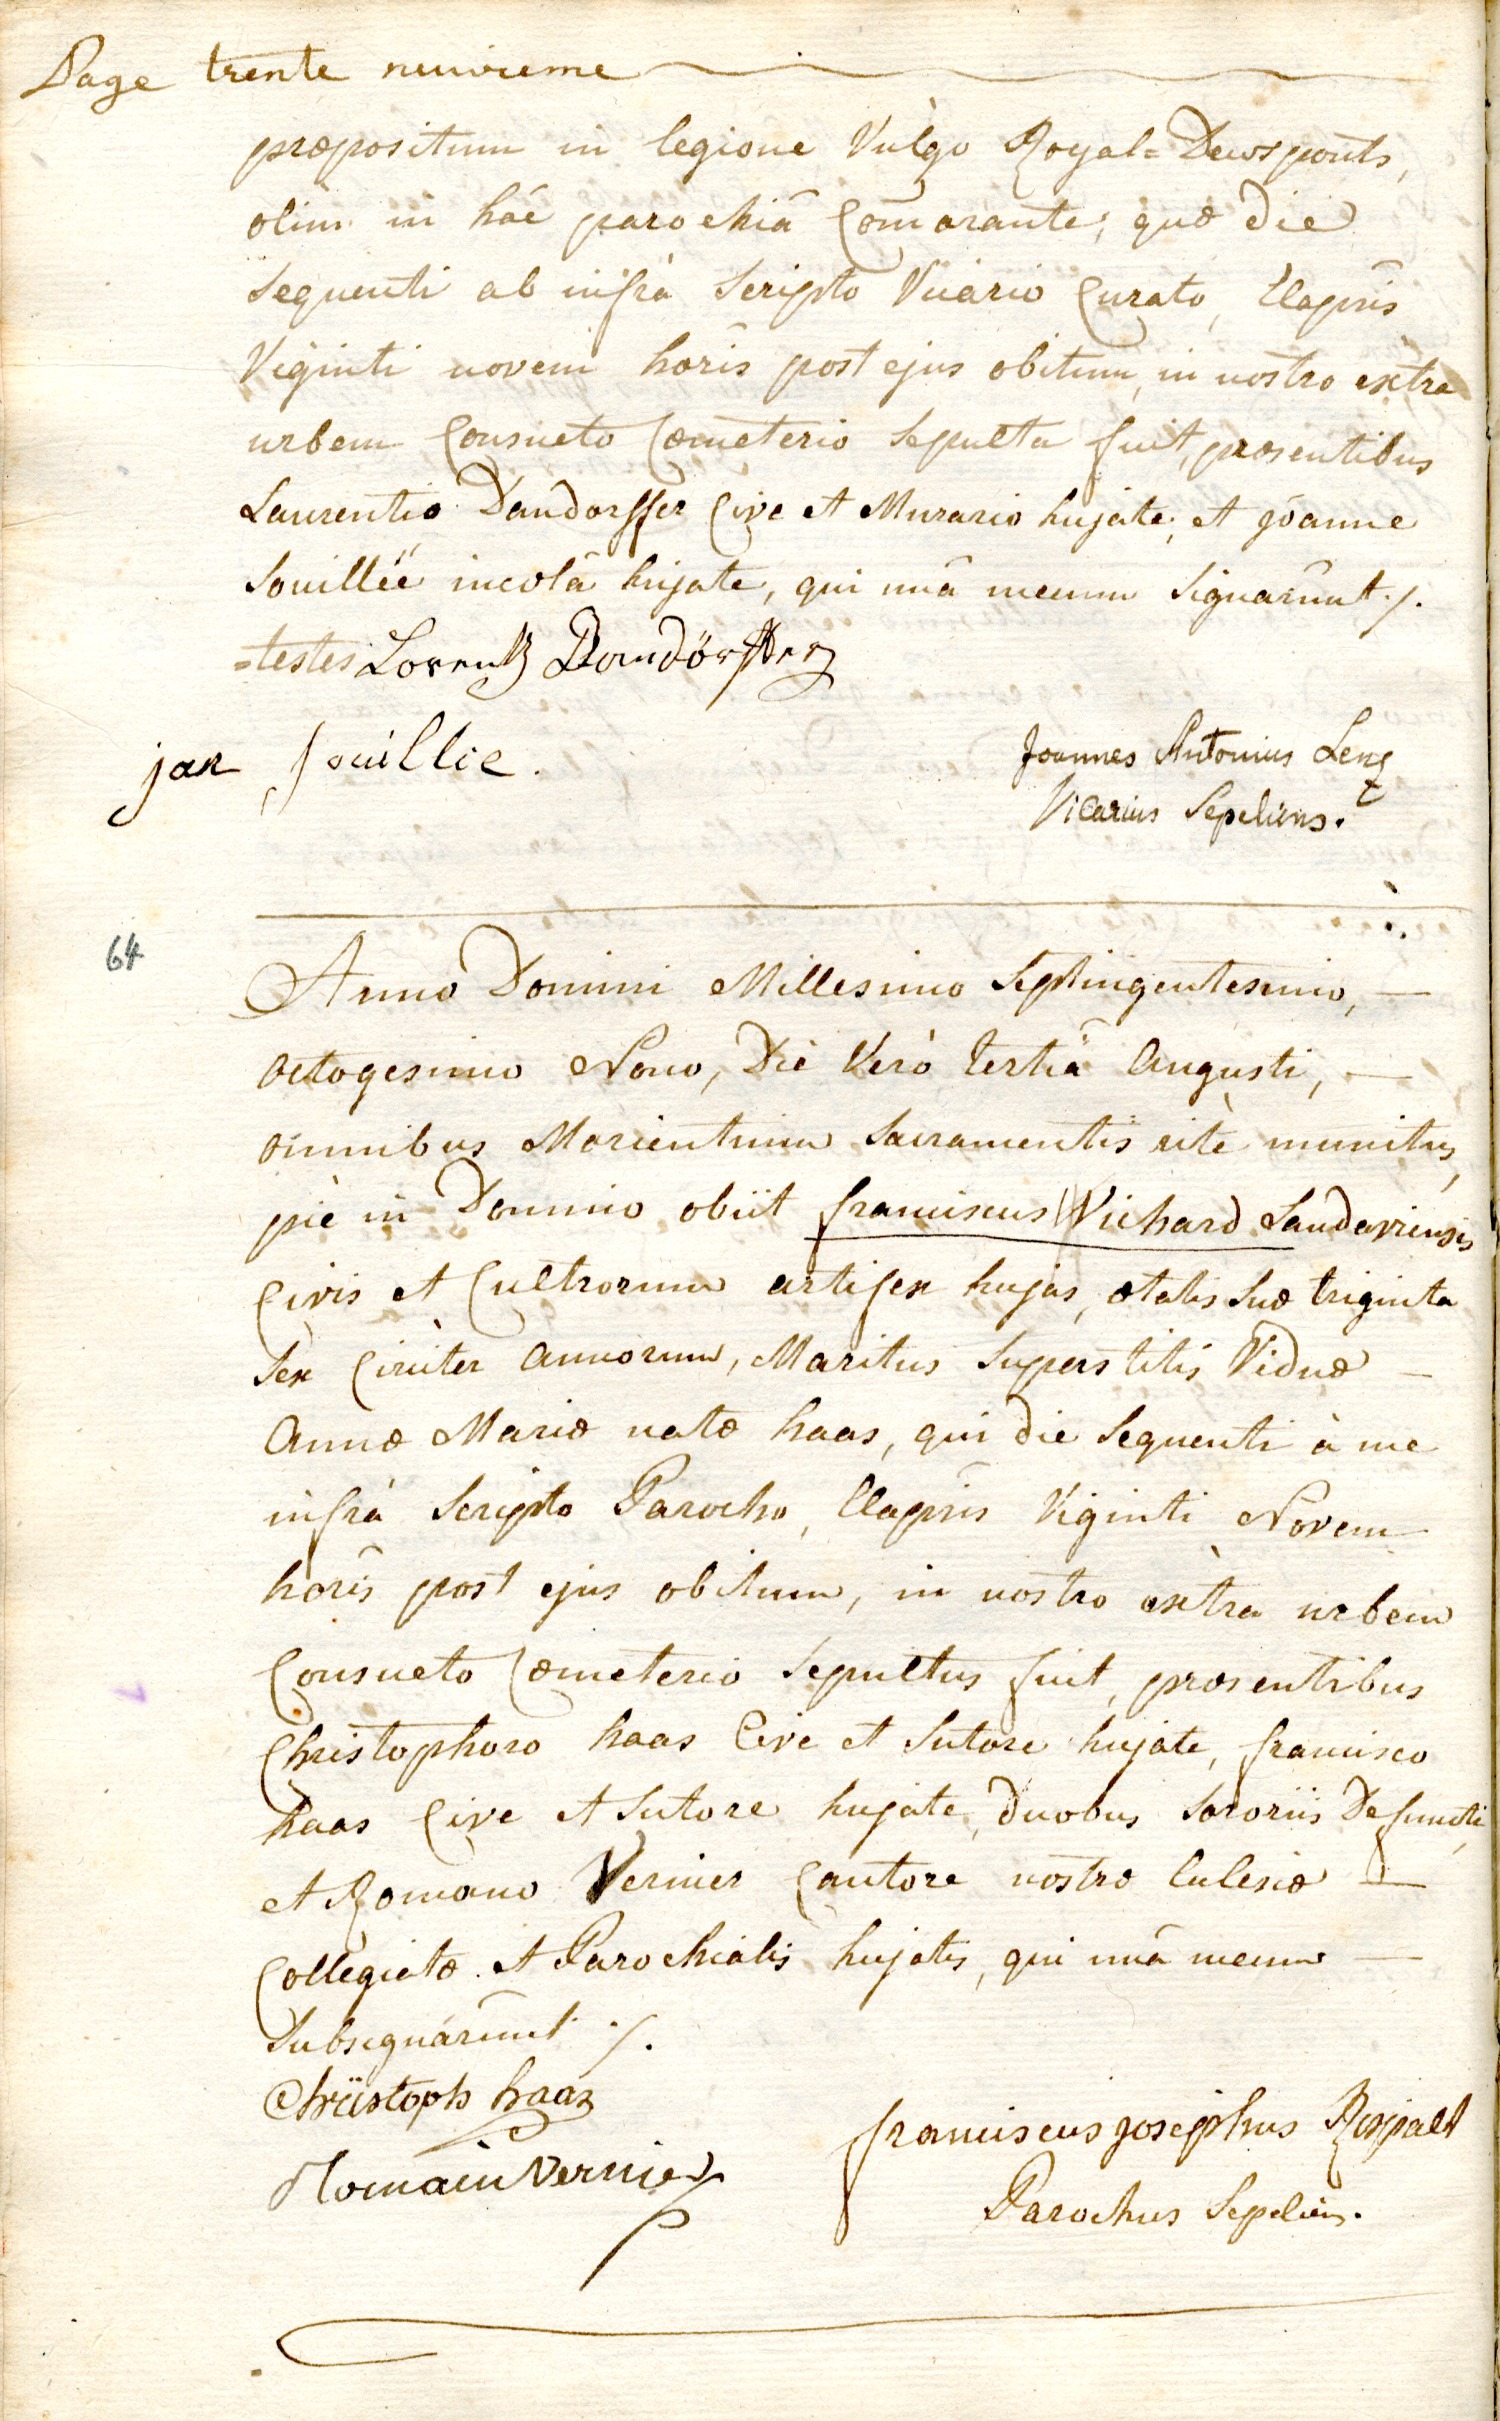 Page trente neuvieme
præpositum in legione Vulgo Royal=Deuxponts,
olim in hâc parochiâ Com̃orante; quæ die
sequenti ab infrà Scripto Vicario Curato, Elapsis
Viginti novem horis post ejus obitum, in nostro extra
urbem Consueto Cœmeterio sepulta fuit, præsentibus
Laurentio Dandorffer Cive et Murario hujate; et joanne
Souilléé incolâ hujate, qui unâ mecum signarũnt ./.
=testes Lorentz Dandörffer
jan souillie.
Joannes Antonius Lenz
Vicarius Sepeliens.
64
Anno Domini Millesimo Septingentesimo, —
octogesimo Nono, Die Verò tertiâ Augusti, —
omnibus Morientium Sacramentis ritè munitus,
piè in Domino obiit franciscus Vichard Landaviensis
Civis et Cultrorum artifex hujas, ætatis suæ triginta
sex Circiter annorum, Maritus superstitis Viduæ —
Annæ Mariæ natæ haas, qui die sequenti à me
infrà scripto Parocho, Elapsis Viginti Novem
horis post ejus obitum, in nostro extra urbem
Consueto Cœmeterio sepultus fuit, præsentibus
Christophoro haas Cive et Sutore hujate, francisco
haas Cive et Sutore hujate, duobus sororiis Defuncti,
et Romano Vernier Cantore nostræ Eclesiæ —
Collegiatæ et Parochialis hujatis, qui unâ mecum —
subsignârũnt ./.
Christoph haas
Romain Vernier
franciscus josephus Rospalt
Parochus Sepeliens.